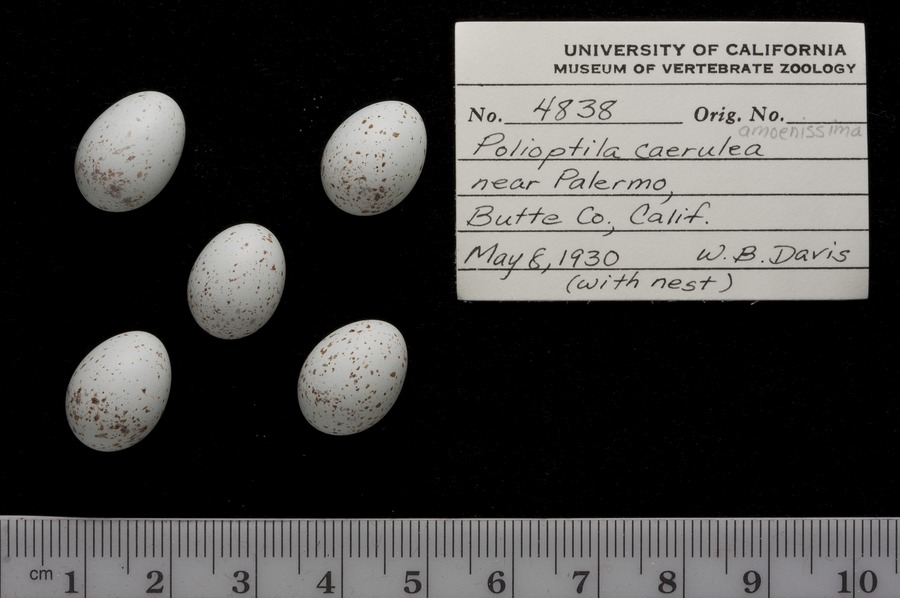 UNIVERSITY OF CALIFORNIA
MUSEUM OF VERTEBRATE ZOOLOGY
No. 4838 Orig. No.
amoenissima
Polioptila caerulea
near Palermo,
Butte Co., Calif.
May 8, 1930 W. B. Davis
(with nest)
cm 1 2 3 4 5 6 7 8 9 10